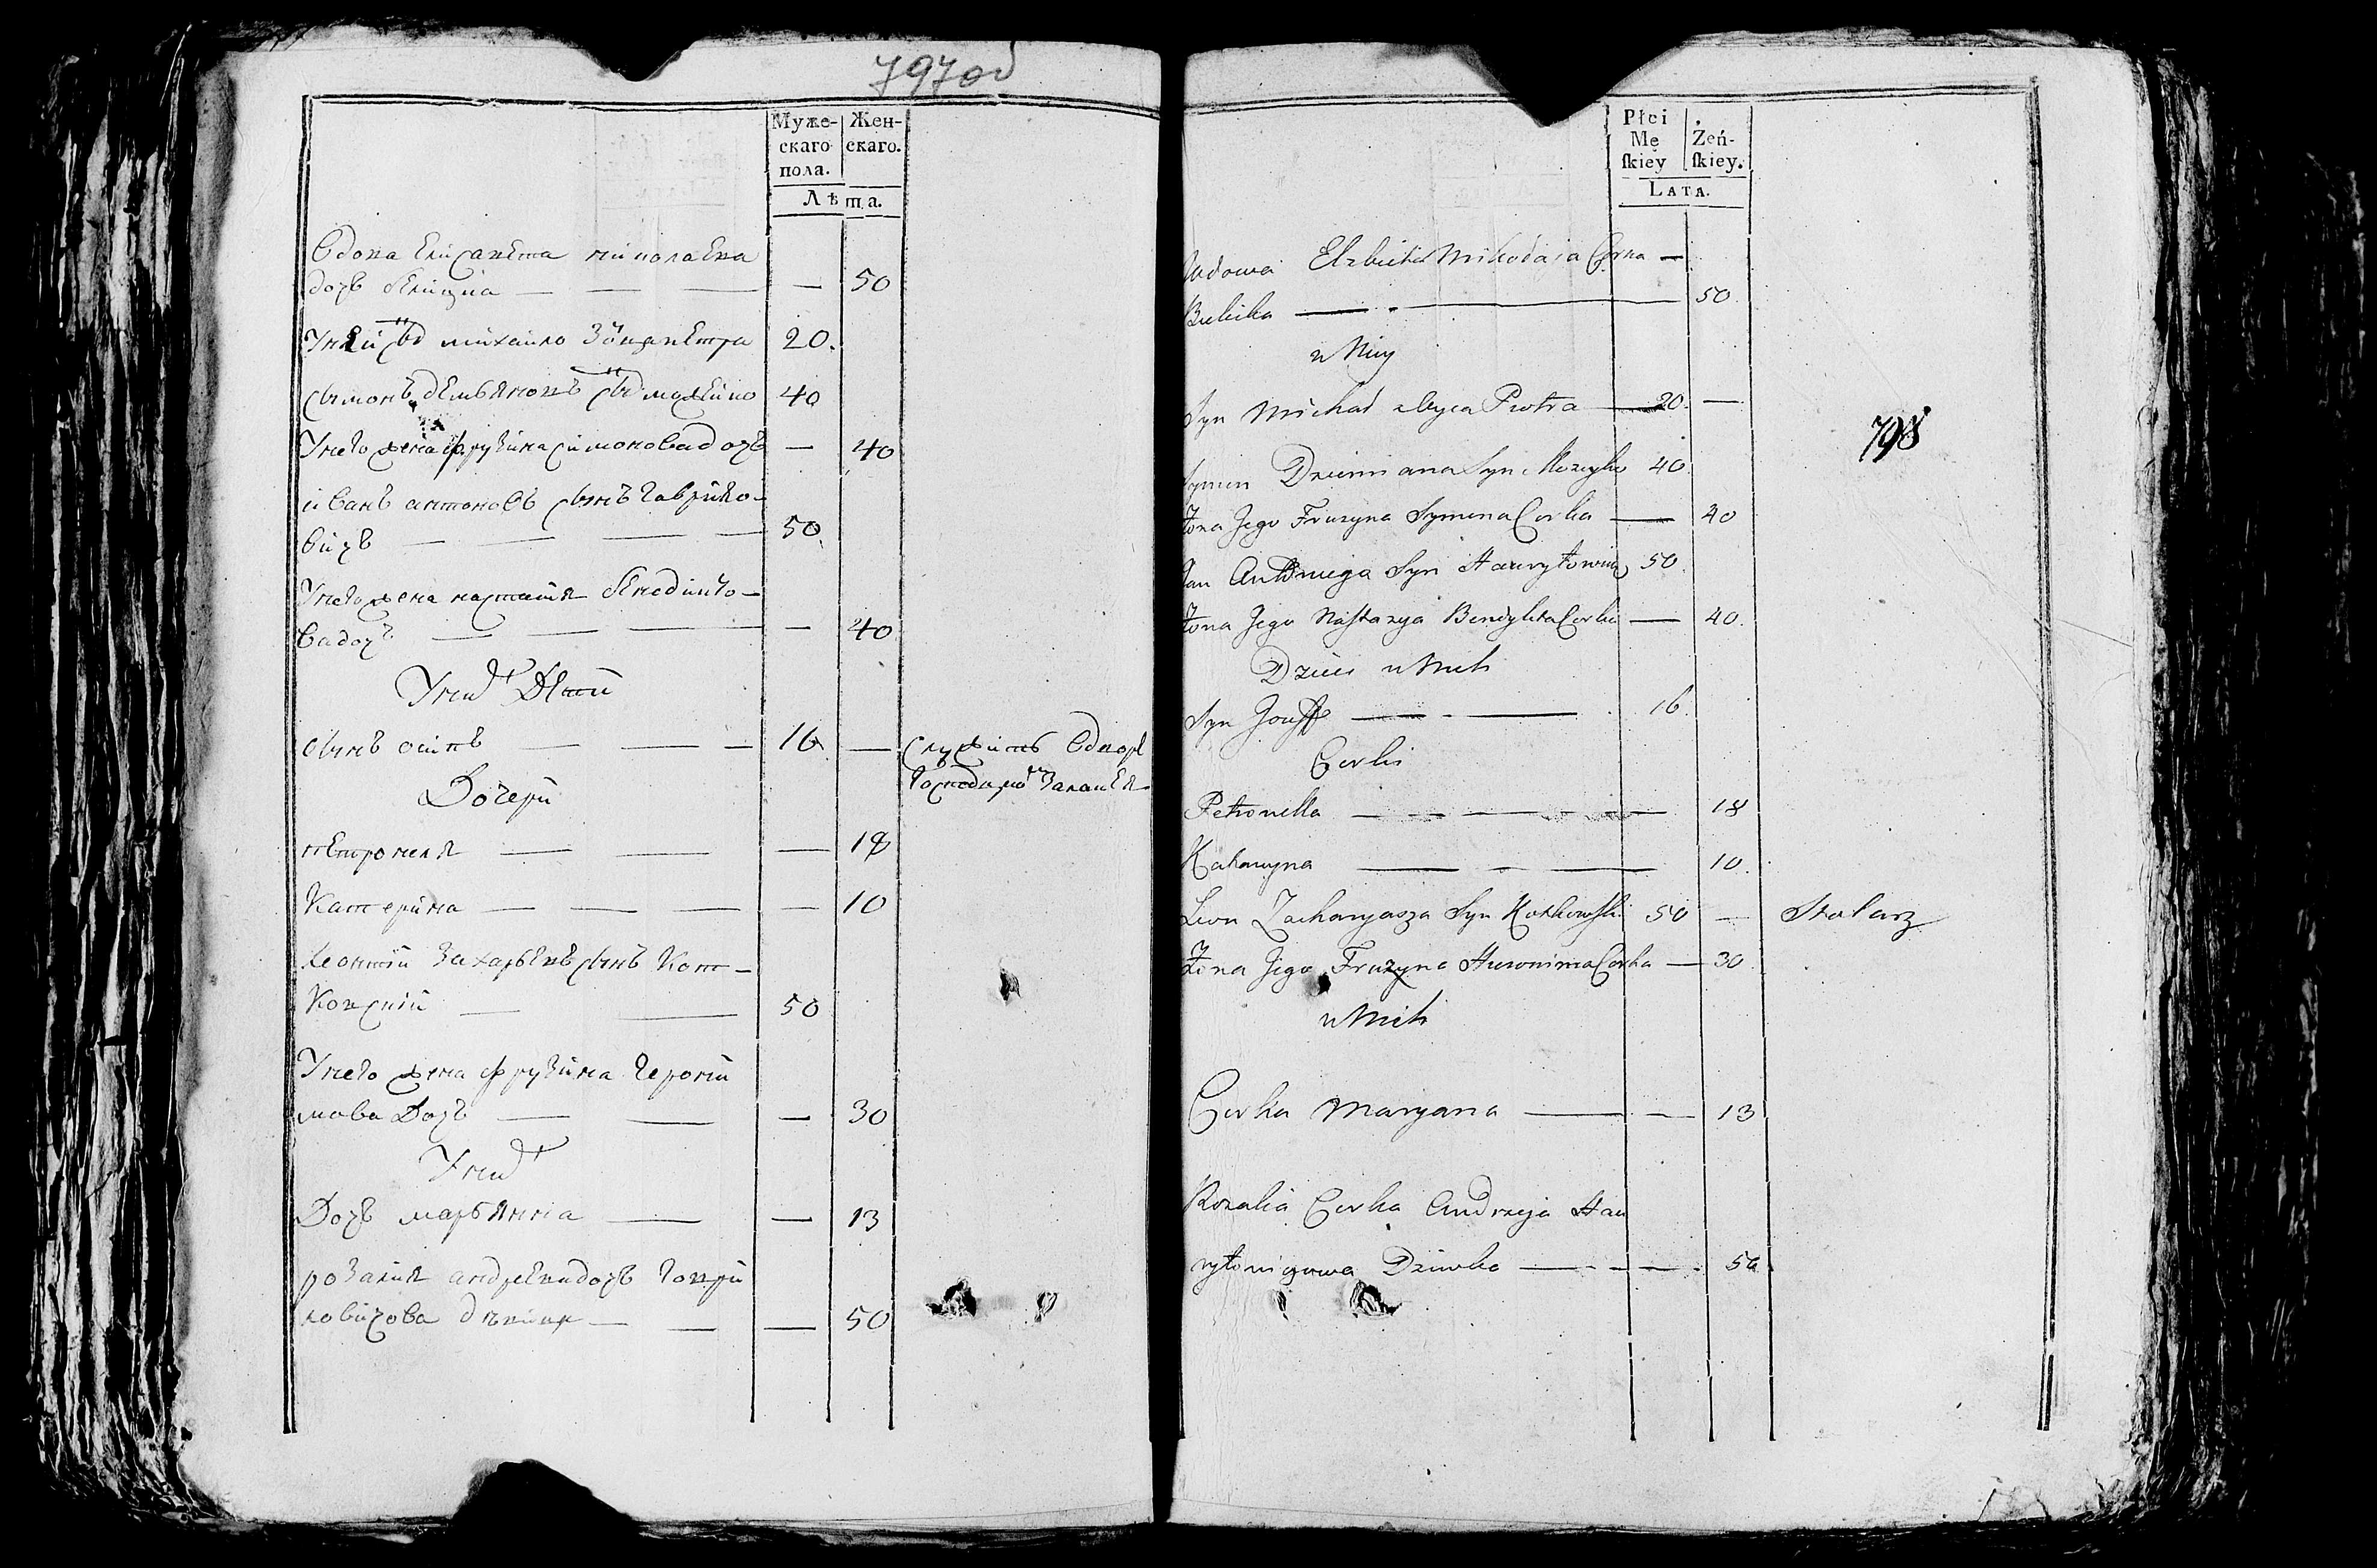 797об
Муже-
скаго
пола.
Жен-
скаго.
Лѣта.
Вдова Елисавета николаева
дочь Белицка — — — — 50
Унеи сынъ михайло 20.
сымонъ демьяновъ сынъ можейко 40
Унего жена фрузына симонова дочь — 40
иванъ антоновъ сынъ Гаврило-
вичъ — — — — 50
Унего жена настасия бенедикто-
ва дочь — — — — 40
Унихъ Дети
сынъ осипъ — — — 16 —
служитъ
Дочери
петронеля — — — 18
Катерина — — — — 10
Леонтий Захарьевъ сынъ Кот-
ковский — — 50
Унего жена фрузина Герони
мова Дочь — — — 30
Унихъ
Дочь марьянна — — 13
розалия андреева дочь Гаври
ловичова девица — — — 50
Płci
Mę
ſkiey
Żeń-
ſkiey.
LATA.
798
Wdowa Elzbieta Mikołaia Corka —
— 50
u Niey
Syn Michał z oyca Piotra — 20. —
Symon Dziemiana Syn Mozeyko 40
Zona Jego Fruzyna Symona Corka — 40
Jan Antoniego Syn Hawryłowicz 50.
Zona Jego Nastazya Benedykta Corka — 40.
Dzieci u Nich
Syn Jozeff — - — 16.
Corki
Petronella — - — - — 18
Katarzyna — - — 10.
Leon Zacharyasza Syn Kotkowski 50 — Stolarz
Zona Jego Fruzyna Hieronima Corka — 30.
u Nich
Corka Maryana — — 13
Rozalia Corka Andrzeja Haw
ryłowiczowa Dziewka — - - — . 50